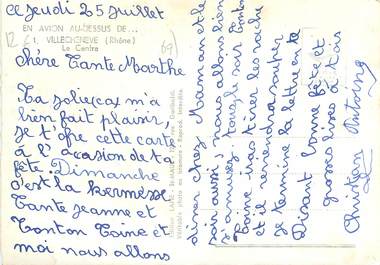 ce Jeudi 25 Juillet
EN AVION AU-DESSUS DE...
1. VILLECHENEVE (Rhône)
Le Centre
69)
Chère Tante Marthe
Ta m'a
bien fait plaisir,
Je t'ofre cette carte
à l' accasion de ta
fête. Dimanche
c'est la kermesse
Tante Jeanne et
Tonton Toine et
moi nous allons
diner chez Maman et le
soir aussi, nous allons bien
s'amusez. Tous le soir Tonton
Toine vas tirer les
et il reviendra souper
Je termine la lettre en te
Disant bonne fête et
grosses bises à tois
Christian Antoine